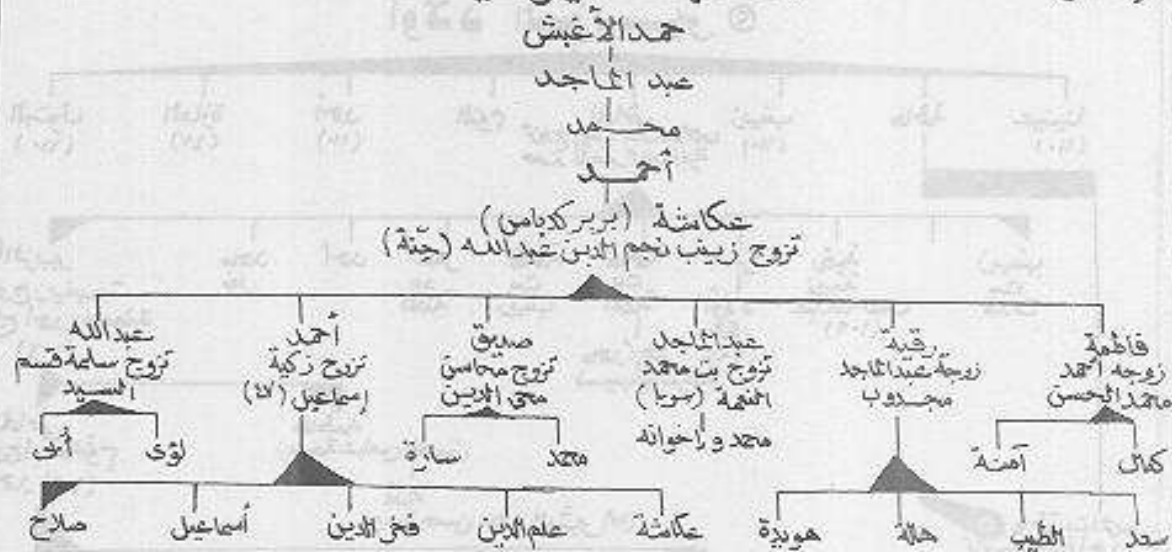 حمد الأغبش
عبد الماجد
محمد
أحمد
عكاشة (بربر كدباس)
تزوج زينب نجم الدين عبد الله (جنة)
فاطمة
زوجه أحمد
محمد الحسن
رقية
زوجة عبد الماجد
مجدوب
عبد الماجد
تزوج بت محمد
النعمة (سوبا)
محمد وإخوانه
صديق
تزوج محاسن
محي الدين
أحمد
تزوج زكية
إسماعيل (٤٧)
عبد الله
تزوج سليمة قسم
السيد
كمال
آمنة
محمد
سارة
لؤى
أبى
سعد
الطيب
هالة
هويدة
عكاشة
علم الدين
فخر الدين
أسماعيل
صلاح